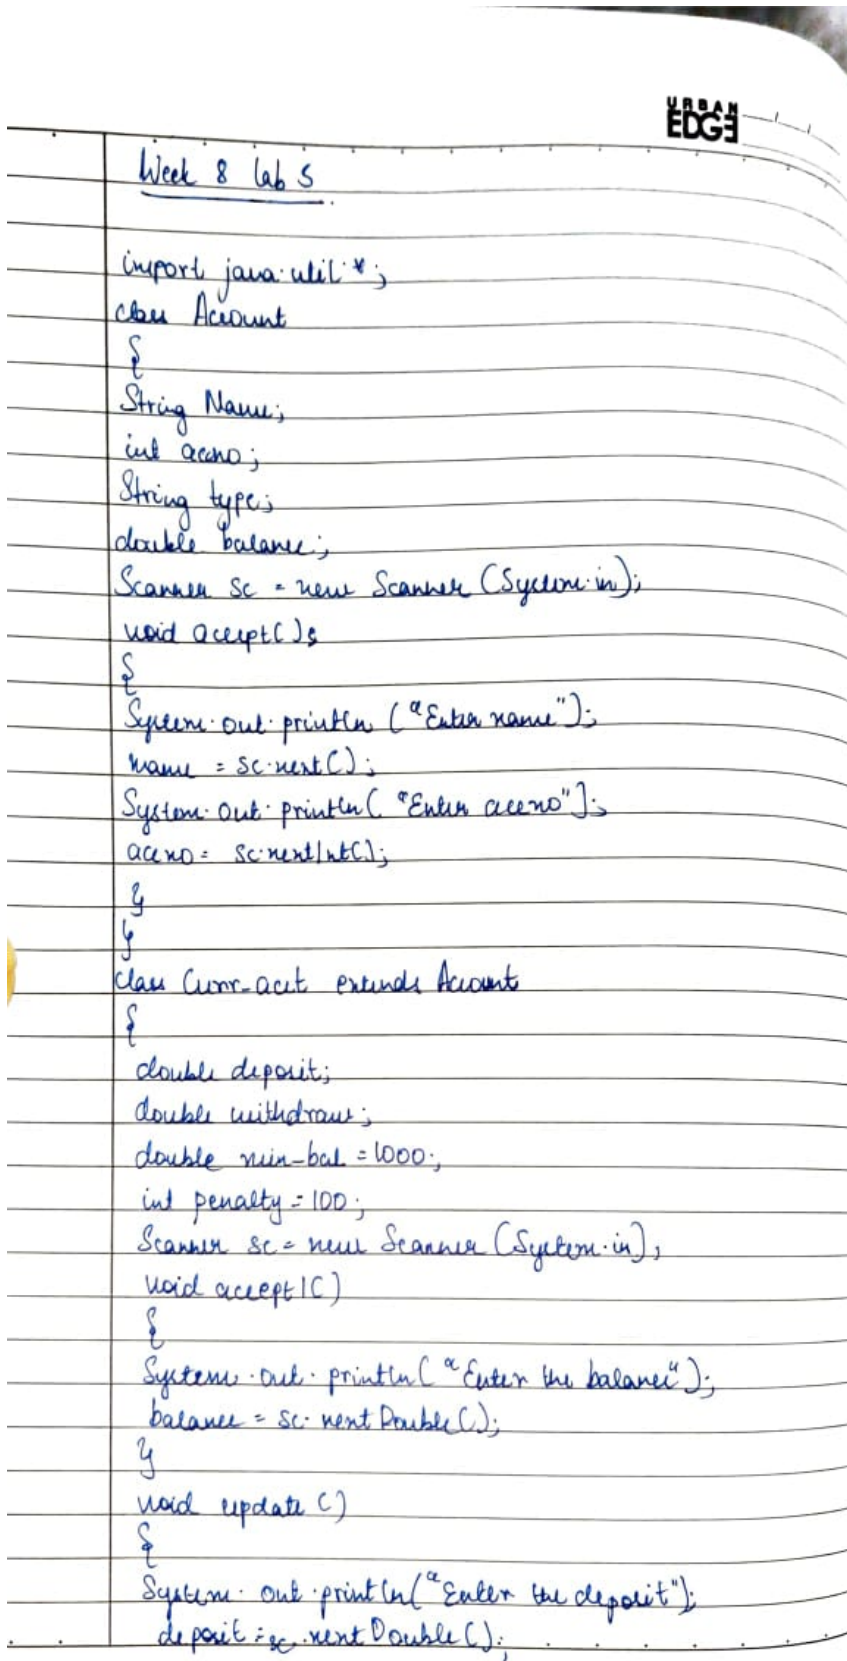 URBAN
EDGE
Week 8 lab 5
import java.util.*;
class Account
{
String Name;
int accno;
String type;
double balance;
Scanner sc = new Scanner (System.in);
void accept();
{
System.out.println ("Enter name");
name = sc.next();
System.out.println( "Enter accno");
accno = sc.nextInt();
}
}
class Curr-acct extends Account
{
double deposit;
double withdraw;
double min-bal = 1000;
int penalty = 100;
Scanner sc = new Scanner (System.in);
void accept1()
{
System.out.println("Enter the balance");
balance = sc.nextDouble();
}
void update ()
{
System.out.println("Enter the deposit");
deposit = sc.nextDouble();